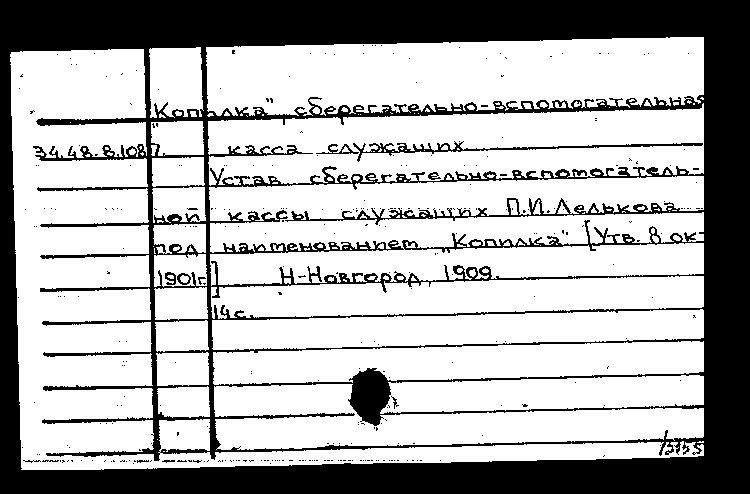 "Копилка", сберегательно-вспомогательная
34.48.8.1087. касса служащих
Устав сберегательно-вспомогатель-
ной кассы служащих П.И.Лелькова
под наименованием „Копилка" [Утв. 8 ок-
1901г.] Н-Новгород, 1909.
14с.